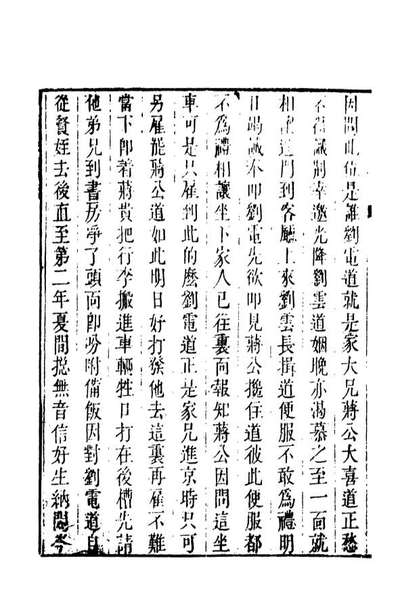 因問此位是誰劉電道就是家大兄蔣公大喜道正愁
不得識荊幸邀光降劉雲道姻晚亦渴慕之至一面就
相遜進門到客廳上來劉雲長揖道便服不敢為禮明
日竭誠奉叩劉電先欲叩見蔣公攙住道彼此便服都
不為禮相讓坐下家人已往裏面報知蔣公因問這坐
車可是只雇到此的麼劉電道正是家兄進京時只可
另雇罷蔣公道如此明日好打發他去這裏再雇不難
當下即着蔣貴把行李搬進車輛牲口打在後槽先請
他弟兄到書房淨了頭面即吩咐備飯因對劉電道自
從賢姪去後直至第二年夏間摠無音信好生納悶今